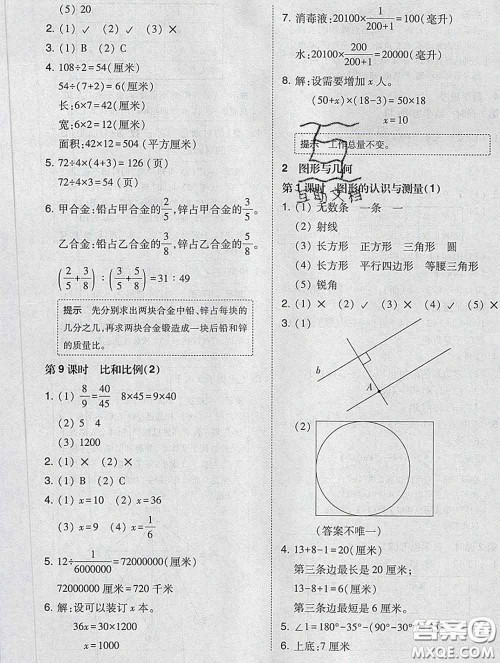 (5) 20
2. (1) × (2) ✓ (3) ×
3. (1) B (2) C
4. 108÷2=54(厘米)
54÷(7+2)=6(厘米)
长:6×7=42(厘米)
宽:6×2=12(厘米)
面积:42×12=504(平方厘米)
5. 72÷4×(4+3)=126(页)
72÷4×3=54(页)
6. 甲合金:铅占甲合金的2/5,锌占甲合金的3/5。
乙合金:铅占乙合金的3/8,锌占乙合金的5/8。
(2/5+3/8):(3/5+5/8)=31:49
提示 先分别求出两块合金中铅、锌占每块的
几分之几,再求两块合金锻造成一块后铅和锌
的质量比。
第9课时 比和比例(2)
1. (1) 8/9=40/45 8×45=9×40
(2) 5 4
(3) 1200
2. (1) × (2) ×
3. (1) B (2) C
4. (1) x=10 (2) x=36
(3) x=9 (4) x=1/6
5. 12÷1/6000000=72000000(厘米)
72000000厘米=720千米
6. 解:设可以装订x本。
36x=30×1200
x=1000
7. 消毒液:20100×1/(200+1)=100(毫升)
水:20100×200/(200+1)=20000(毫升)
8. 解:设需要增加x人。
(50+x)×(18-3)=50×18
x=10
提示 工作总量不变。
2 图形与几何
第1课时 图形的认识与测量(1)
互助文档
1. (1) 无数条 一条 一
(2) 射线
(3) 长方形 正方形 三角形 圆
(4) 长方形 平行四边形 等腰三角形
(5) 锐角
2. (1) × (2) ✓ (3) × (4) × (5) ✓
3. (1)
b
A
(2)
(答案不唯一)
4. 13+8-1=20(厘米)
第三条边最长是20厘米。
13-8+1=6(厘米)
第三条边最短是6厘米。
5. ∠1=180°-35°-(90°-35°
6. 上底:7厘米
答案圈
MXQE.COM